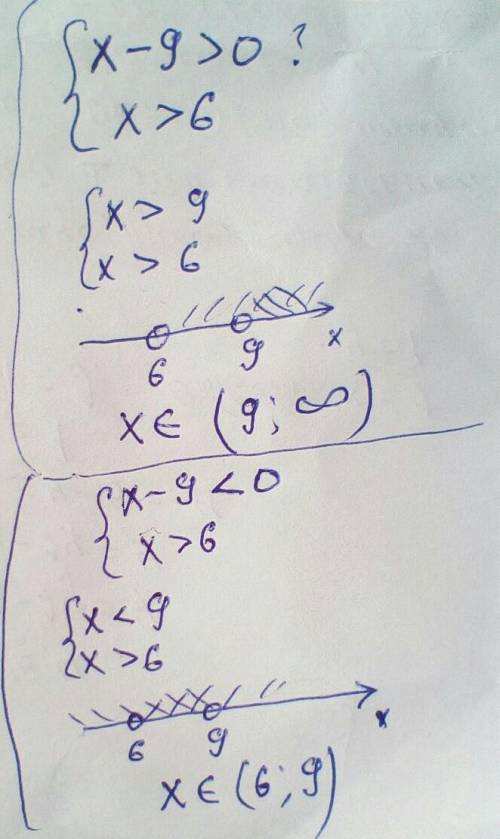 x-9>0 ?
x>6
x>9
x>6
6 9 x
x∈ (9; ∞)
x-9<0
x>6
x<9
x>6
6 9 x
x∈(6;9)